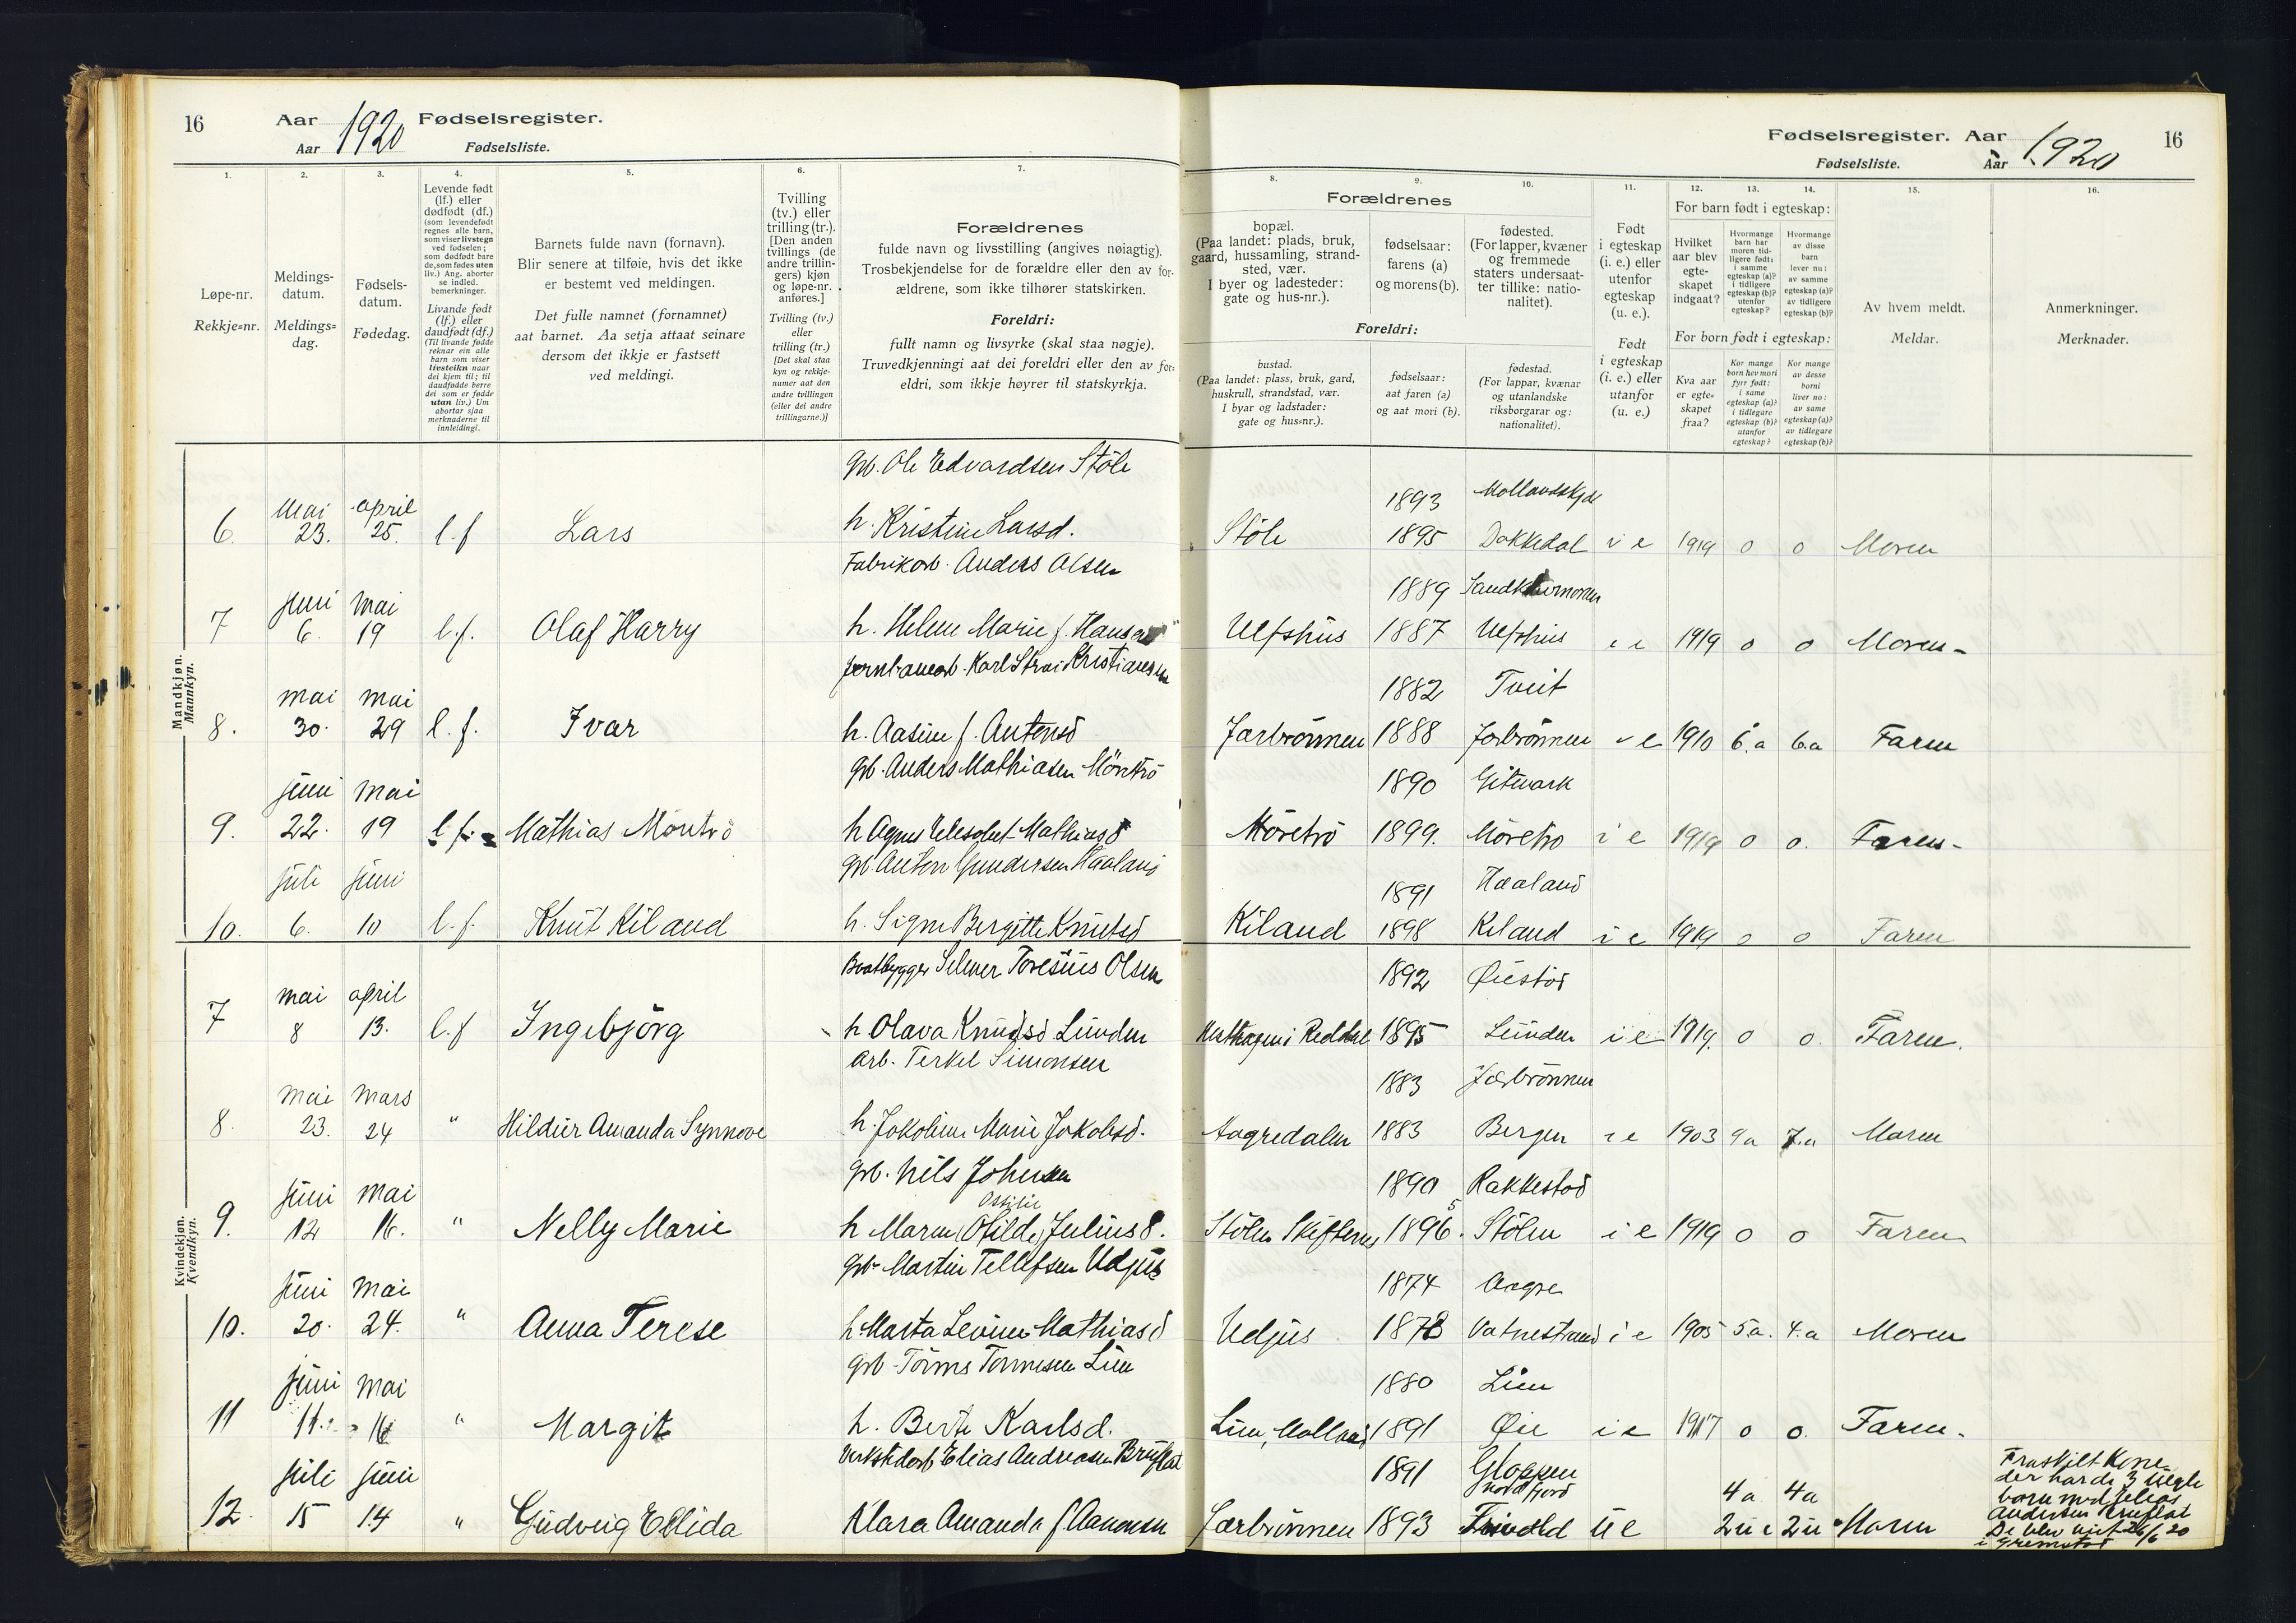 16
Aar 1920 Fødselsregister.
Aar Fødselsliste.
1.
2.
3.
4.
5.
6.
7.
Løpe-nr.
Rekkje=nr.
Meldings-
datum.
Meldings=
dag.
Fødsels-
datum.
Fødedag.
Levende født
(lf.) eller
dødfødt (df.)
(som levendefødt
regnes alle barn,
som viser livstegn
ved fødselen;
som dødfødt bare
de, som fødes uten
liv.) Ang. aborter
se indled.
bemerkninger.
Livande født
(lf.) eller
daudfødt (df.)
(Til livande fødde
reknar ein alle
barn som viser
livsteikn naar
dei kjem til; til
daudfødde berre
dei som er fødde
utan liv.) Um
abortar sjaa
merknaderne til
innleidingi.
Barnets fulde navn (fornavn).
Blir senere at tilføie, hvis det ikke
er bestemt ved meldingen.
Det fulle namnet (fornamnet)
aat barnet. Aa setja attaat seinare
dersom det ikkje er fastsett
ved meldingi.
Tvilling
(tv.) eller
trilling (tr.).
[Den anden
tvillings (de
andre trillin-
gers) kjøn
og løpe-nr.
anføres.]
Tvilling (tv.)
eller
trilling (tr.)
[Det skal staa
kyn og rekkje-
numer aat den
andre tvillingen
(eller dei andre
trillingarne.)]
Forældrenes
fulde navn og livsstilling (angives nøiagtig).
Trosbekjendelse for de forældre eller den av for-
ældrene, som ikke tilhører statskirken.
Foreldri:
fullt namn og livsyrke (skal staa nøgje).
Truvedkjenningi aat dei foreldri eller den av for=
eldri, som ikkje høyrer til statskyrkja.
Fødselsregister. Aar 1920
Fødselsliste. Aar
16
8.
9.
10.
11.
12.
13.
14.
15.
16.
Forældrenes
bopæl.
(Paa landet: plads, bruk,
gaard, hussamling, strand-
sted, vær.
I byer og ladesteder:
gate og hus-nr.).
fødselsaar:
farens (a)
og morens (b).
fødested.
(For lapper, kvæner
og fremmede
staters undersaat-
ter tillike: natio-
nalitet).
Foreldri:
bustad.
(Paa landet: plass, bruk, gard,
huskrull, strandstad, vær.
I byar og ladstader:
gate og hus=nr.).
fødselsaar:
aat faren (a)
og aat mori (b).
fødestad.
(For lappar, kvænar
og utanlandske
riksborgarar og:
nationalitet).
Født
i egteskap
(i. e.) eller
utenfor
egteskap
(u. e.).
Født
i egteskap
(i. e.) eller
utanfor
(u. e.)
For barn født i egteskap:
Hvilket
aar blev
egte-
skapet
indgaat?
Hvormange
barn har
moren tid-
ligere født:
i samme
egteskap (a)?
i tidligere
egteskap (b)?
utenfor
egteskap?
Hvormange
av disse
barn
lever nu:
av samme
egteskap (a)?
av tidligere
egteskap (b)?
For born født i egteskap:
Kva aar
er egte=
skapet
fraa?
Kor mange
born hev mori
fyrr født:
i same
egteskap (a)?
i tidlegare
egteskap (b)?
utanfor
egteskap?
Kor mange
av desse
borni
liver no:
av same
egteskap (a)?
av tidlegare
egteskap (b)?
Av hvem meldt.
Meldar.
Anmerkninger.
Merknader.
Mandkjøn.
Mannkyn.
Grb. Ole Edvardsen Støle
1893
6. Mai 23. april 25. l.f Lars h. Kristine Larsd. Støle 1895 Dokkedal i e 1919 0 0 Moren
Fabrikarb. Anders Olsen
1889
7 Juni 6. Mai 19 l.f. Olaf Harry h. Helene Marie f. Hansen Ulfshus 1887 Ulfshus i e 1919 0 0 Moren -
Karl Kristiansen
1882 Tveit
8. mai 30. mai 29 l.f. Ivar h. Aasine f. Antensd Jorbrönnen 1888 Jorbrönnen i e 1910 6.a 6.a Faren
Grb. Anders Mathiasen Möretrö
1890 Gitmark
9. juni 22. Mai 19 l.f. Mathias Möretrö h Agnes Elesabet Mathiasd Möretrö 1899. Möretrö i e 1919 0 0. Faren -
Grb. Anton Gundersen Haaland
1891 Haaland
10. juli 6. juni 10 l.f. Knut Kiland h. Signe Bergitte Knutsd Kiland 1898 Kiland i e 1919 0 0 Faren
Kvindekjøn.
Kvendkyn.
Baatbygger Selmer Toresius Olsen
1892 Øiestad
7 mai 8 april 13. l.f Ingebjörg h Olava Knudsd. Lunden Reddal 1895 Lunden i e 1919. 0 0. Faren.
Arb. Terkel Simonsen
1883 Jorbrönnen
8. mai 23. mars 24 " Hildur Amanda Synnove h. Jokobine Marie Jakobsd. Aagredalen 1883 Bergen i e 1903 9a 7.a Moren
Grb. Nils Johnsen
1890 Rakkestad
9. juni 12 mai 16. " Nelly Marie h Maren (Otilde) Julius d. Stölen 1896 5. Stölen i e 1919 0 0 Faren
Grb. Martin Tellefsen Udjus
1874 Aagre
10. juni 20. mai 24. " Anna Terese h. Marta Levine Mathiasd Udjus 1878 Vatnestrand i e 1905 5a. 4.a Moren
Grb - Torms Tormsen Lien
1880 Lien
11 juni 11. mai 16 " Margit h. Berte Karlsd. Lien, 1891 Øie i e 1917 0 0. Faren -
Verkstedarb Elias Andreasen Bruflat
1891 Gloppen
Nordfjord 4a 4a
12. juli 15 juni 14 " Gudveig Ellida Klara Amanda f Aanonsen Jorbrönnen 1893 u e 2 u e 2 u e Moren
Fraskilt kone
der hardi 3 uegte
barn med Elias
Andersen Bruflat
De blev viet 26/6 20
i Grimstad